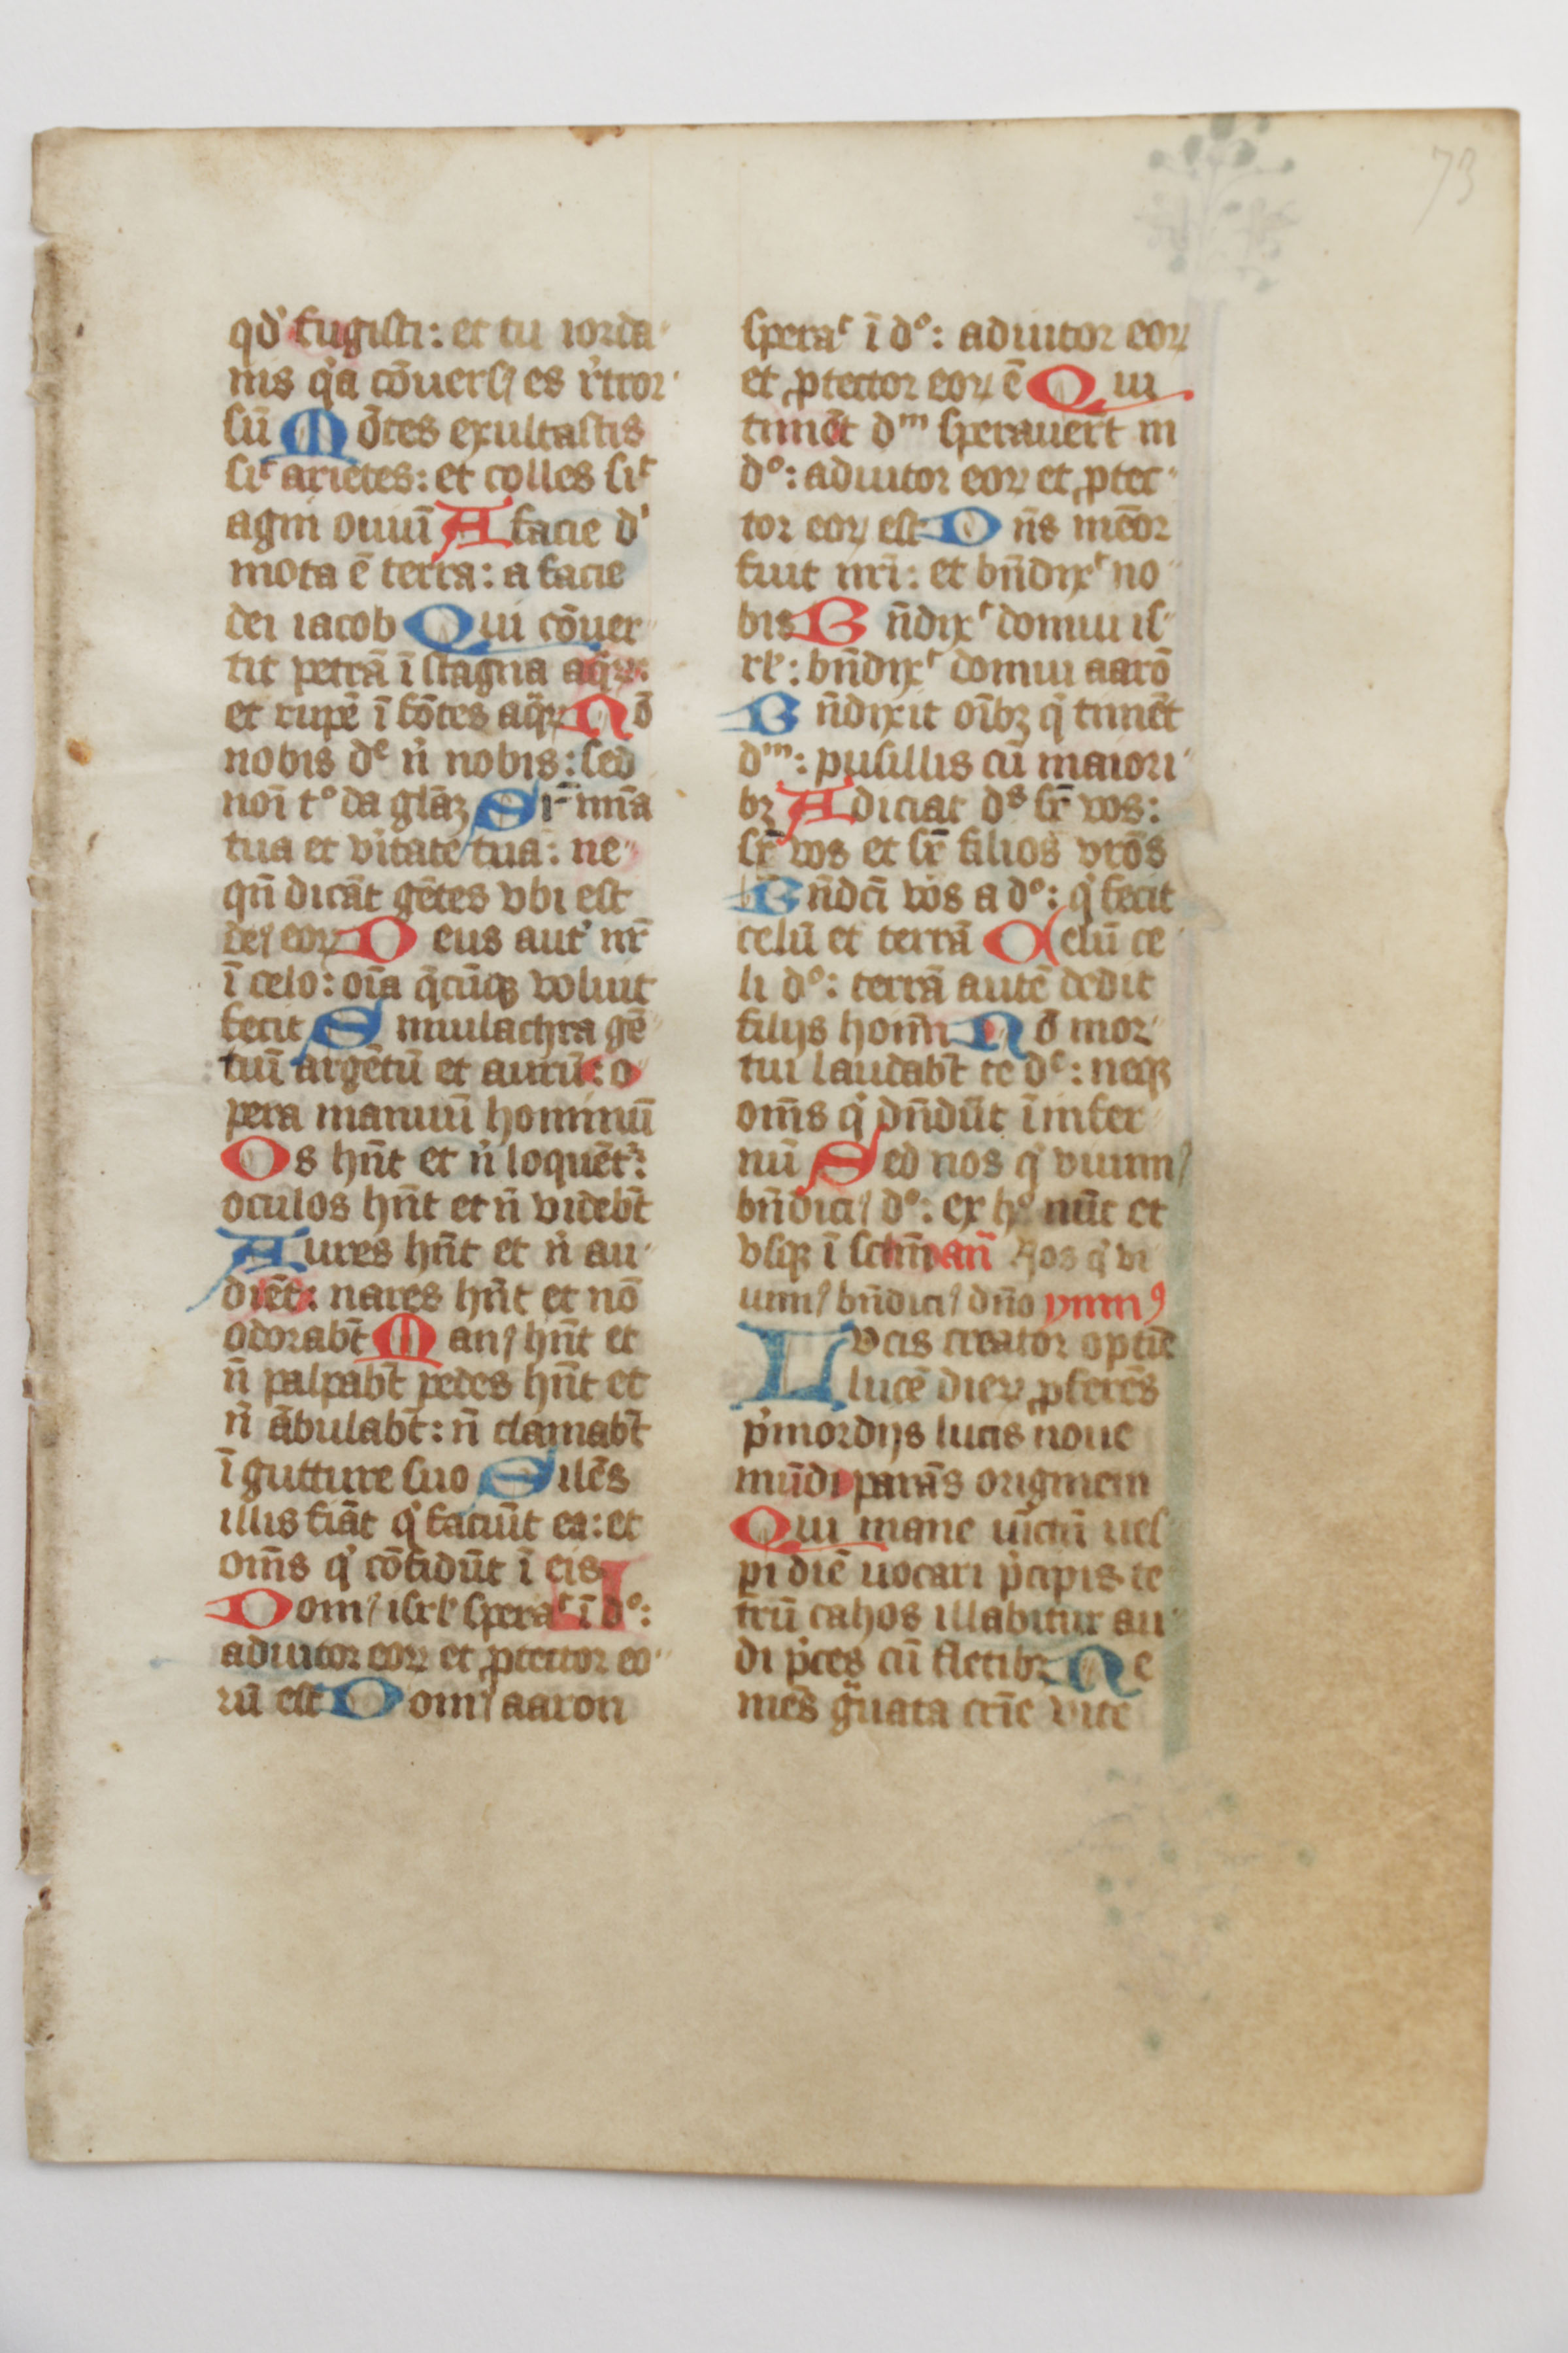 73
qd' fugisti: et tu iorda
nis q'a cōuersꝰ es r'tror
sū Mōtes exultastis
sic arietes: et colles sic
agni ouiū A facie d'
mota ē terra: a facie
dei iacob Qui cōuer
tit petrā ī stagna aq̄ꝝ:
et rupē ī fōtes aq̄ꝝ Nō
nobis de n' nobis: sed
noī to da glāꝫ Sr̄ mīa
tua et v'itate tua: ne
qn̄ dicāt gētes vbi est
deꝰ eoꝝ Deus aut' nr̄
ī celo: oīa q̄cūqꝫ voluit
fecit Simulachra gē
tiū argētū et aurū: o
pera manuū hominū
Os hn̄t et n' loquēt':
oculos hn̄t et n̄ videbt̄
Aures hn̄t et n' au
diēt: nares hn̄t et nō
odorabt̄ Manꝰ hn̄t et
n̄ palpabt̄ pedes hn̄t et
n' ābulabt̄: n̄ clamabt̄
ī gutture suo Silēs
illis fiāt q' faciūt ea: et
om̄s q' cōfidūt ī eis
Domꝰ isrl' sperac ī do:
adiutor eoꝝ et ꝓtector eo
rū est Domꝰ aaron
sperac ī do: adiutor eoꝝ
et ꝓtector eoꝝ ē Qui
timēt dm sperauer̄t in
do: adiutor eoꝝ et ꝓtec
tor eoꝝ est Dn̄s mēor
fuit nr̄i: et bn̄dixc no
bis Bn̄dixc domui is
rl': bn̄dixc domui aarō
Bn̄dixit oībꝫ q' timēt
dm: pusillis cū maiori
bꝫ Adiciat ds sr̄ vos:
sr̄ vos et sr̄ filios vrōs
Bn̄dc̄i vos a do: q' fecit
celū et terrā Celū ce
li do: terrā autē dedit
filijs hoīm Nō mor
tui laudabt̄ te de: neqꝫ
om̄s q' dn̄dūt ī infer
nū Sed nos q' viuimꝰ
bn̄diciꝰ do: ex ho nūc et
vsqꝫ ī sclm̄ an̄ Nos q' vi
uimꝰ bn̄diciꝰ dn̄o ymnꝰ
Lvcis creator optīe
lucē dieꝝ ꝓferēs
p'mordijs lucis noue
mūdi parās originem
Qui mane iūctū ues
ꝑi diē uocari p'cipis te
trū cahos illabitur au
di p'ces cū fletibꝫ Ne
mēs gͣuata crīe vite